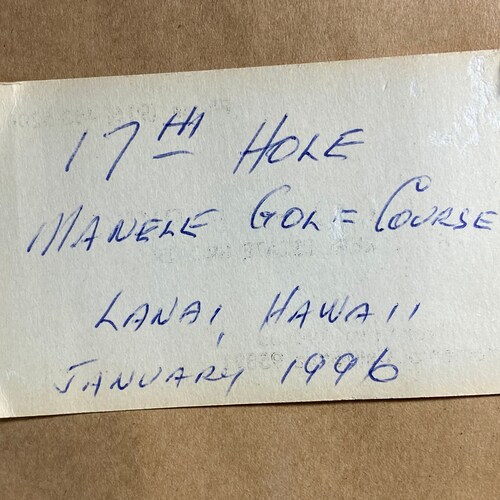 17TH HOLE
MANELE GOLF COURSE
LANAI, HAWAII
JANUARY 1996